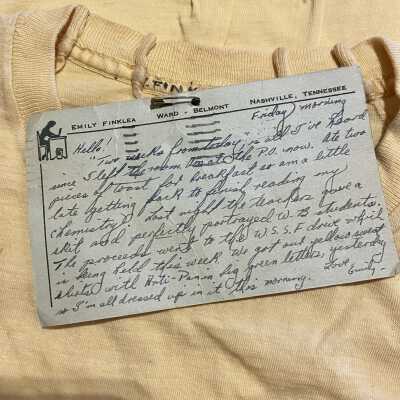 FINK
EMILY FINKLEA WARD - BELMONT NASHVILLE, TENNESSEE
Friday morning
Hello!
"Two weeks from today" is all I've heard
since I left the room to the P.O. now. Ate two
pieces of toast for breakfast so am a little
late getting back to finish reading my
chemistry. Last night the teachers gave a
skit and perfectly portrayed W.B. students.
The proceeds went to the W.S.S.F drive which
is being held this week. We got our yellow sweat
shirts with Anti-Pan in big green letters yesterday
so I'm all dressed up in it this morning.
Love,
Emily-